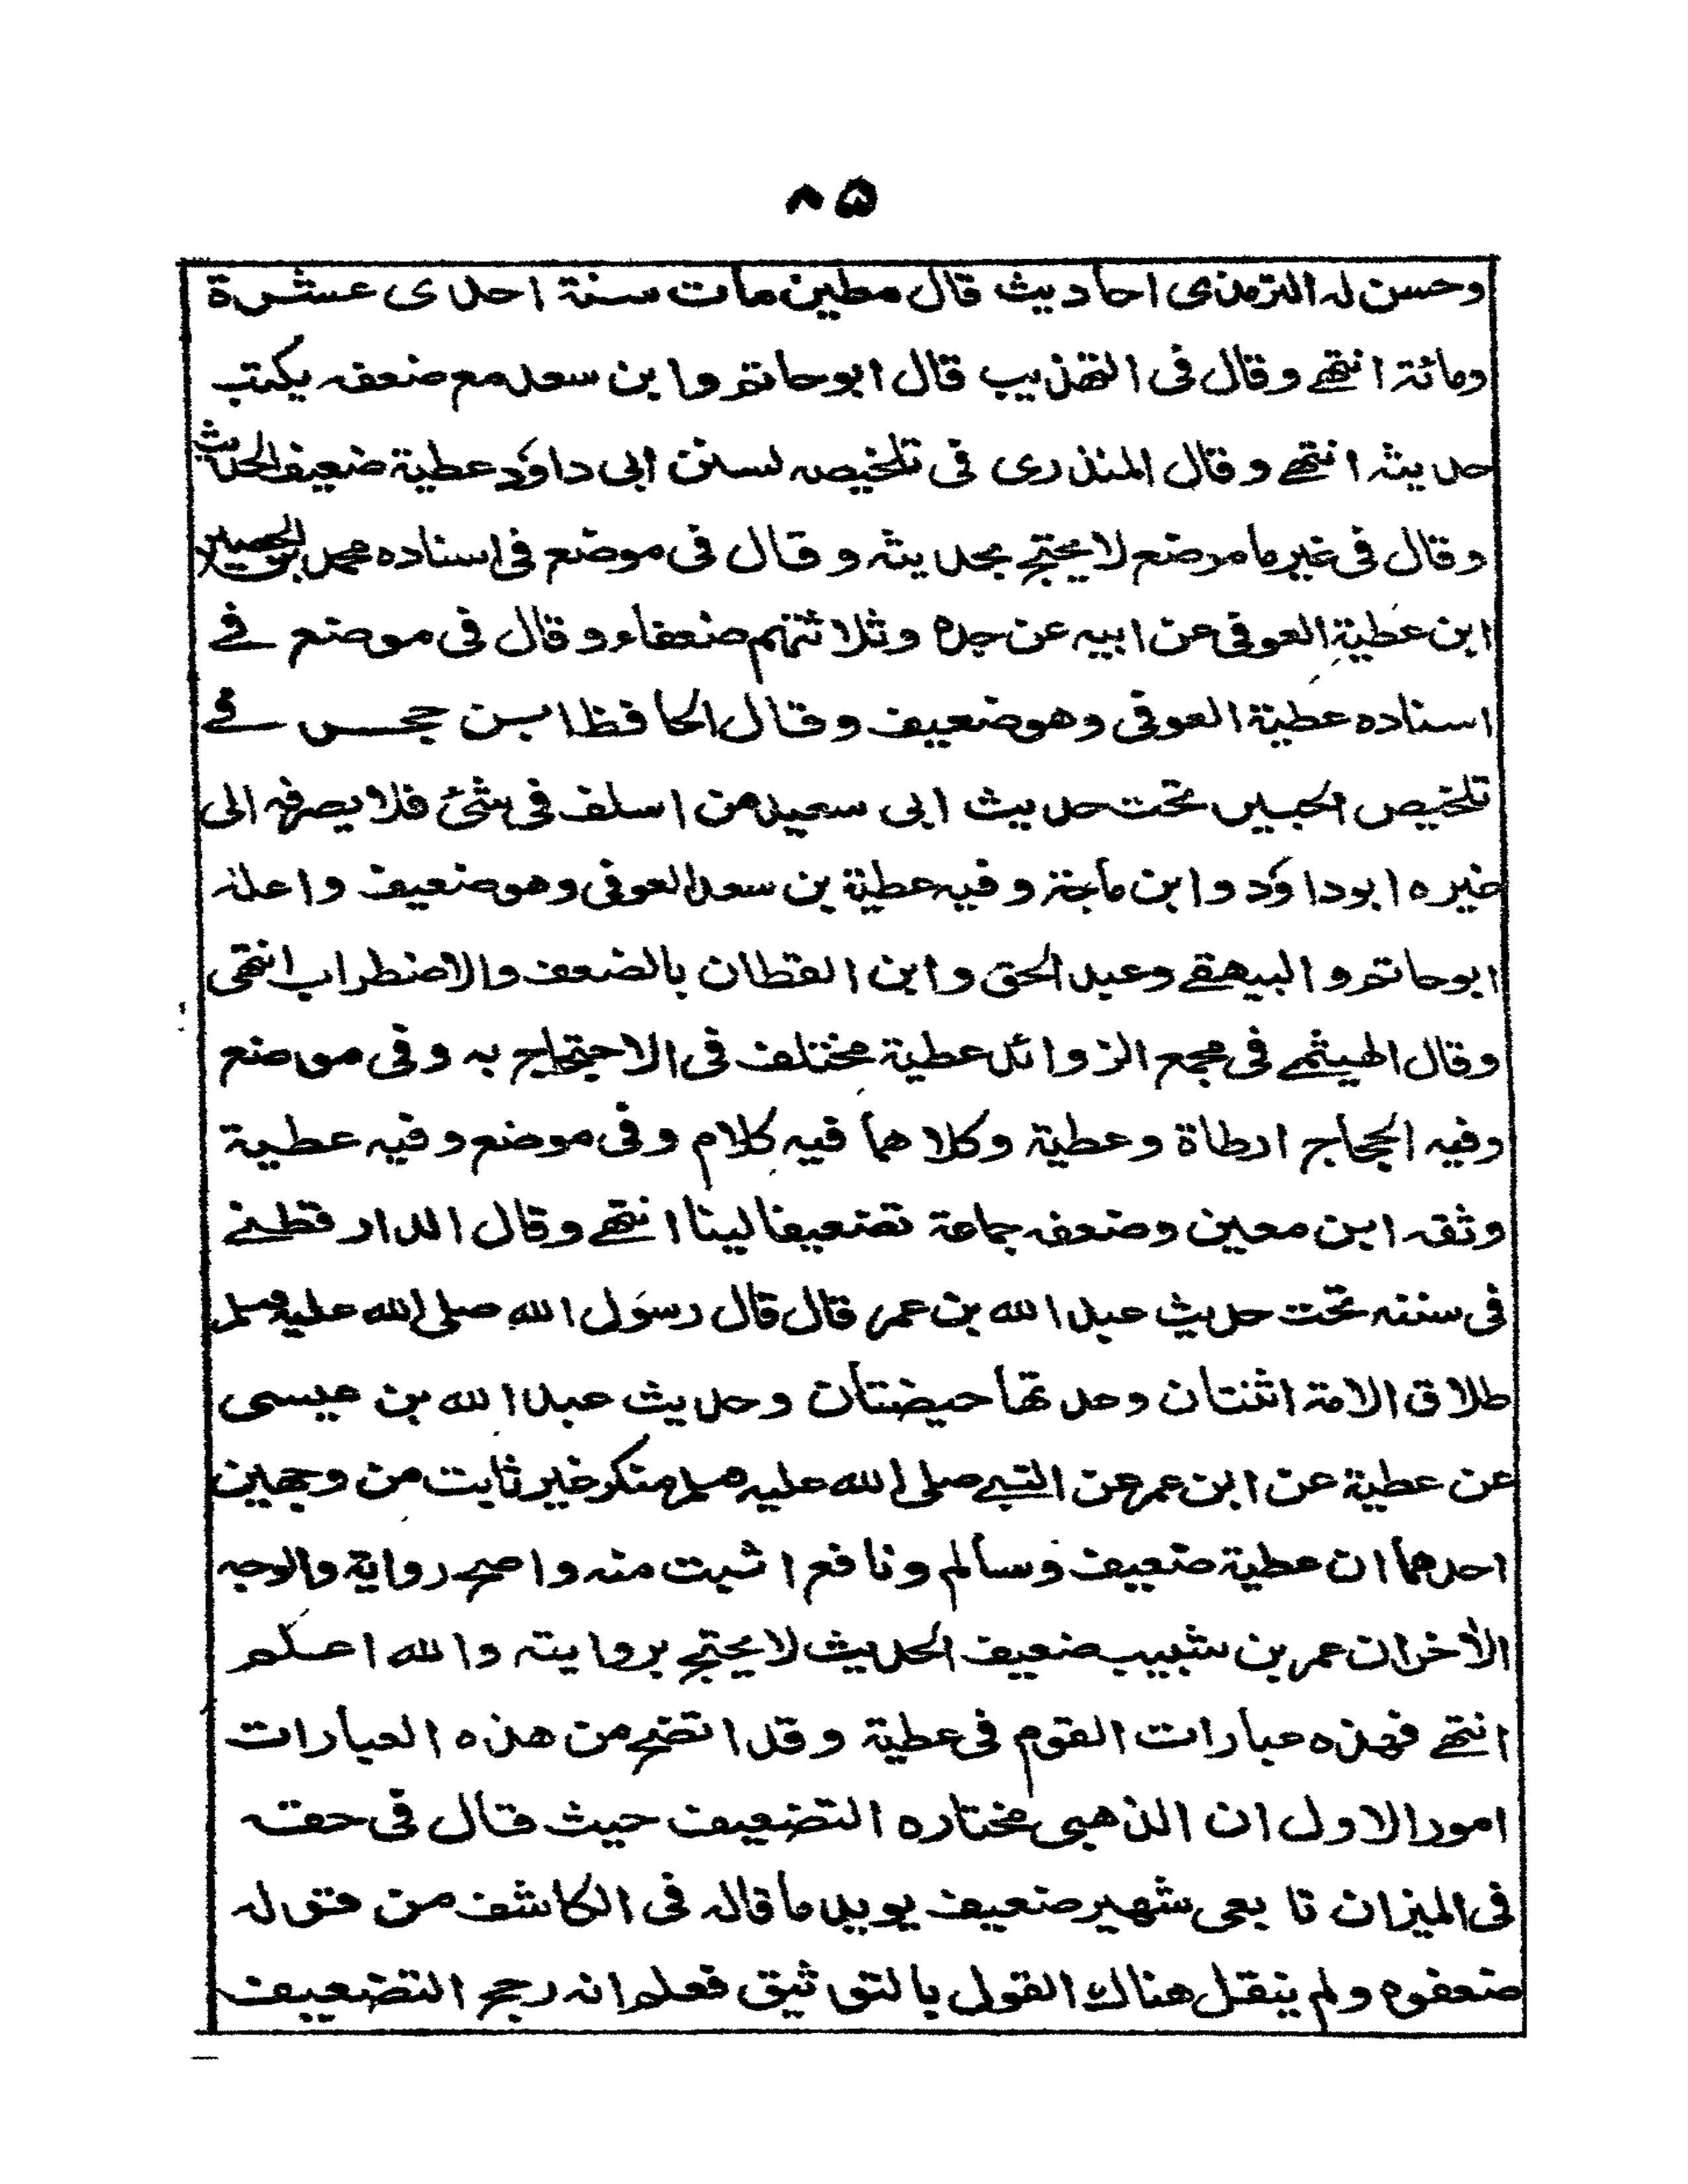 ٨٥
وحسن له الترمذى احاديث قال مطين مات سنة احدى عشرة
ومائة انتهے وقال فى التهذيب قال ابوحاتم وابن سعد مع ضعفه يكتب
حديثه انتهے وقال المنذرى فى تلخيصه لسنن ابى داؤد عطية ضعيف الحديث
وقال فى غير ما موضع لا يحتج بحديثه وقال فى موضع فى اسناده محمد بن الحسين
ابن عطية العوفى عن ابيه عن جده وثلاثتهم ضعفاء وقال فى موضع فے
اسناده عطية العوفى وهو ضعيف وقال الحافظ ابن حجر فے
تلخيص الحبير تحت حديث ابى سعيد من اسلف فى شئ فلا يصرفه الى
غيره ابوداؤد وابن ماجة وفيه عطية بن سعد العوفى وهو ضعيف واعله
ابوحاتم والبيهقے وعبد الحق وابن القطان بالضعف والاضطراب انتهى
وقال الهيثمے فى مجمع الزوائد عطية مختلف فى الاحتجاج به وفى موضع
وفيه الحجاج ارطاة وعطية وكلاهما فيه كلام وفى موضع وفيه عطية
وثقه ابن معين وضعفه جماعة تضعيفا لينا انتهے وقال الدارقطنے
فى سننه تحت حديث عبد الله بن عمر قال قال رسول الله صلى الله عليه وسلم
طلاق الامة اثنتان وعدتها حيضتان وحديث عبد الله بن عيسى
عن عطية عن ابن عمر عن النبے صلى الله عليه وسلم منكر غير ثابت من وجهين
احدهما ان عطية ضعيف وسالم ونافع اثبت منه واصح رواية والوجه
الأخر ان عمر بن شبيب ضعيف الحديث لا يحتج بروايته والله اعلم
انتهے فهذه عبارات القوم فى عطية وقد اتضح من هذه العبارات
امور الاول ان الذهبى مختاره التضعيف حيث قال فى حقه
فى الميزان تابعى شهير ضعيف يويده ما قاله فى الكاشف من قوله
ضعفوه ولم ينقل هناك القول بالتوثيق فعلم انه رجح التضعيف